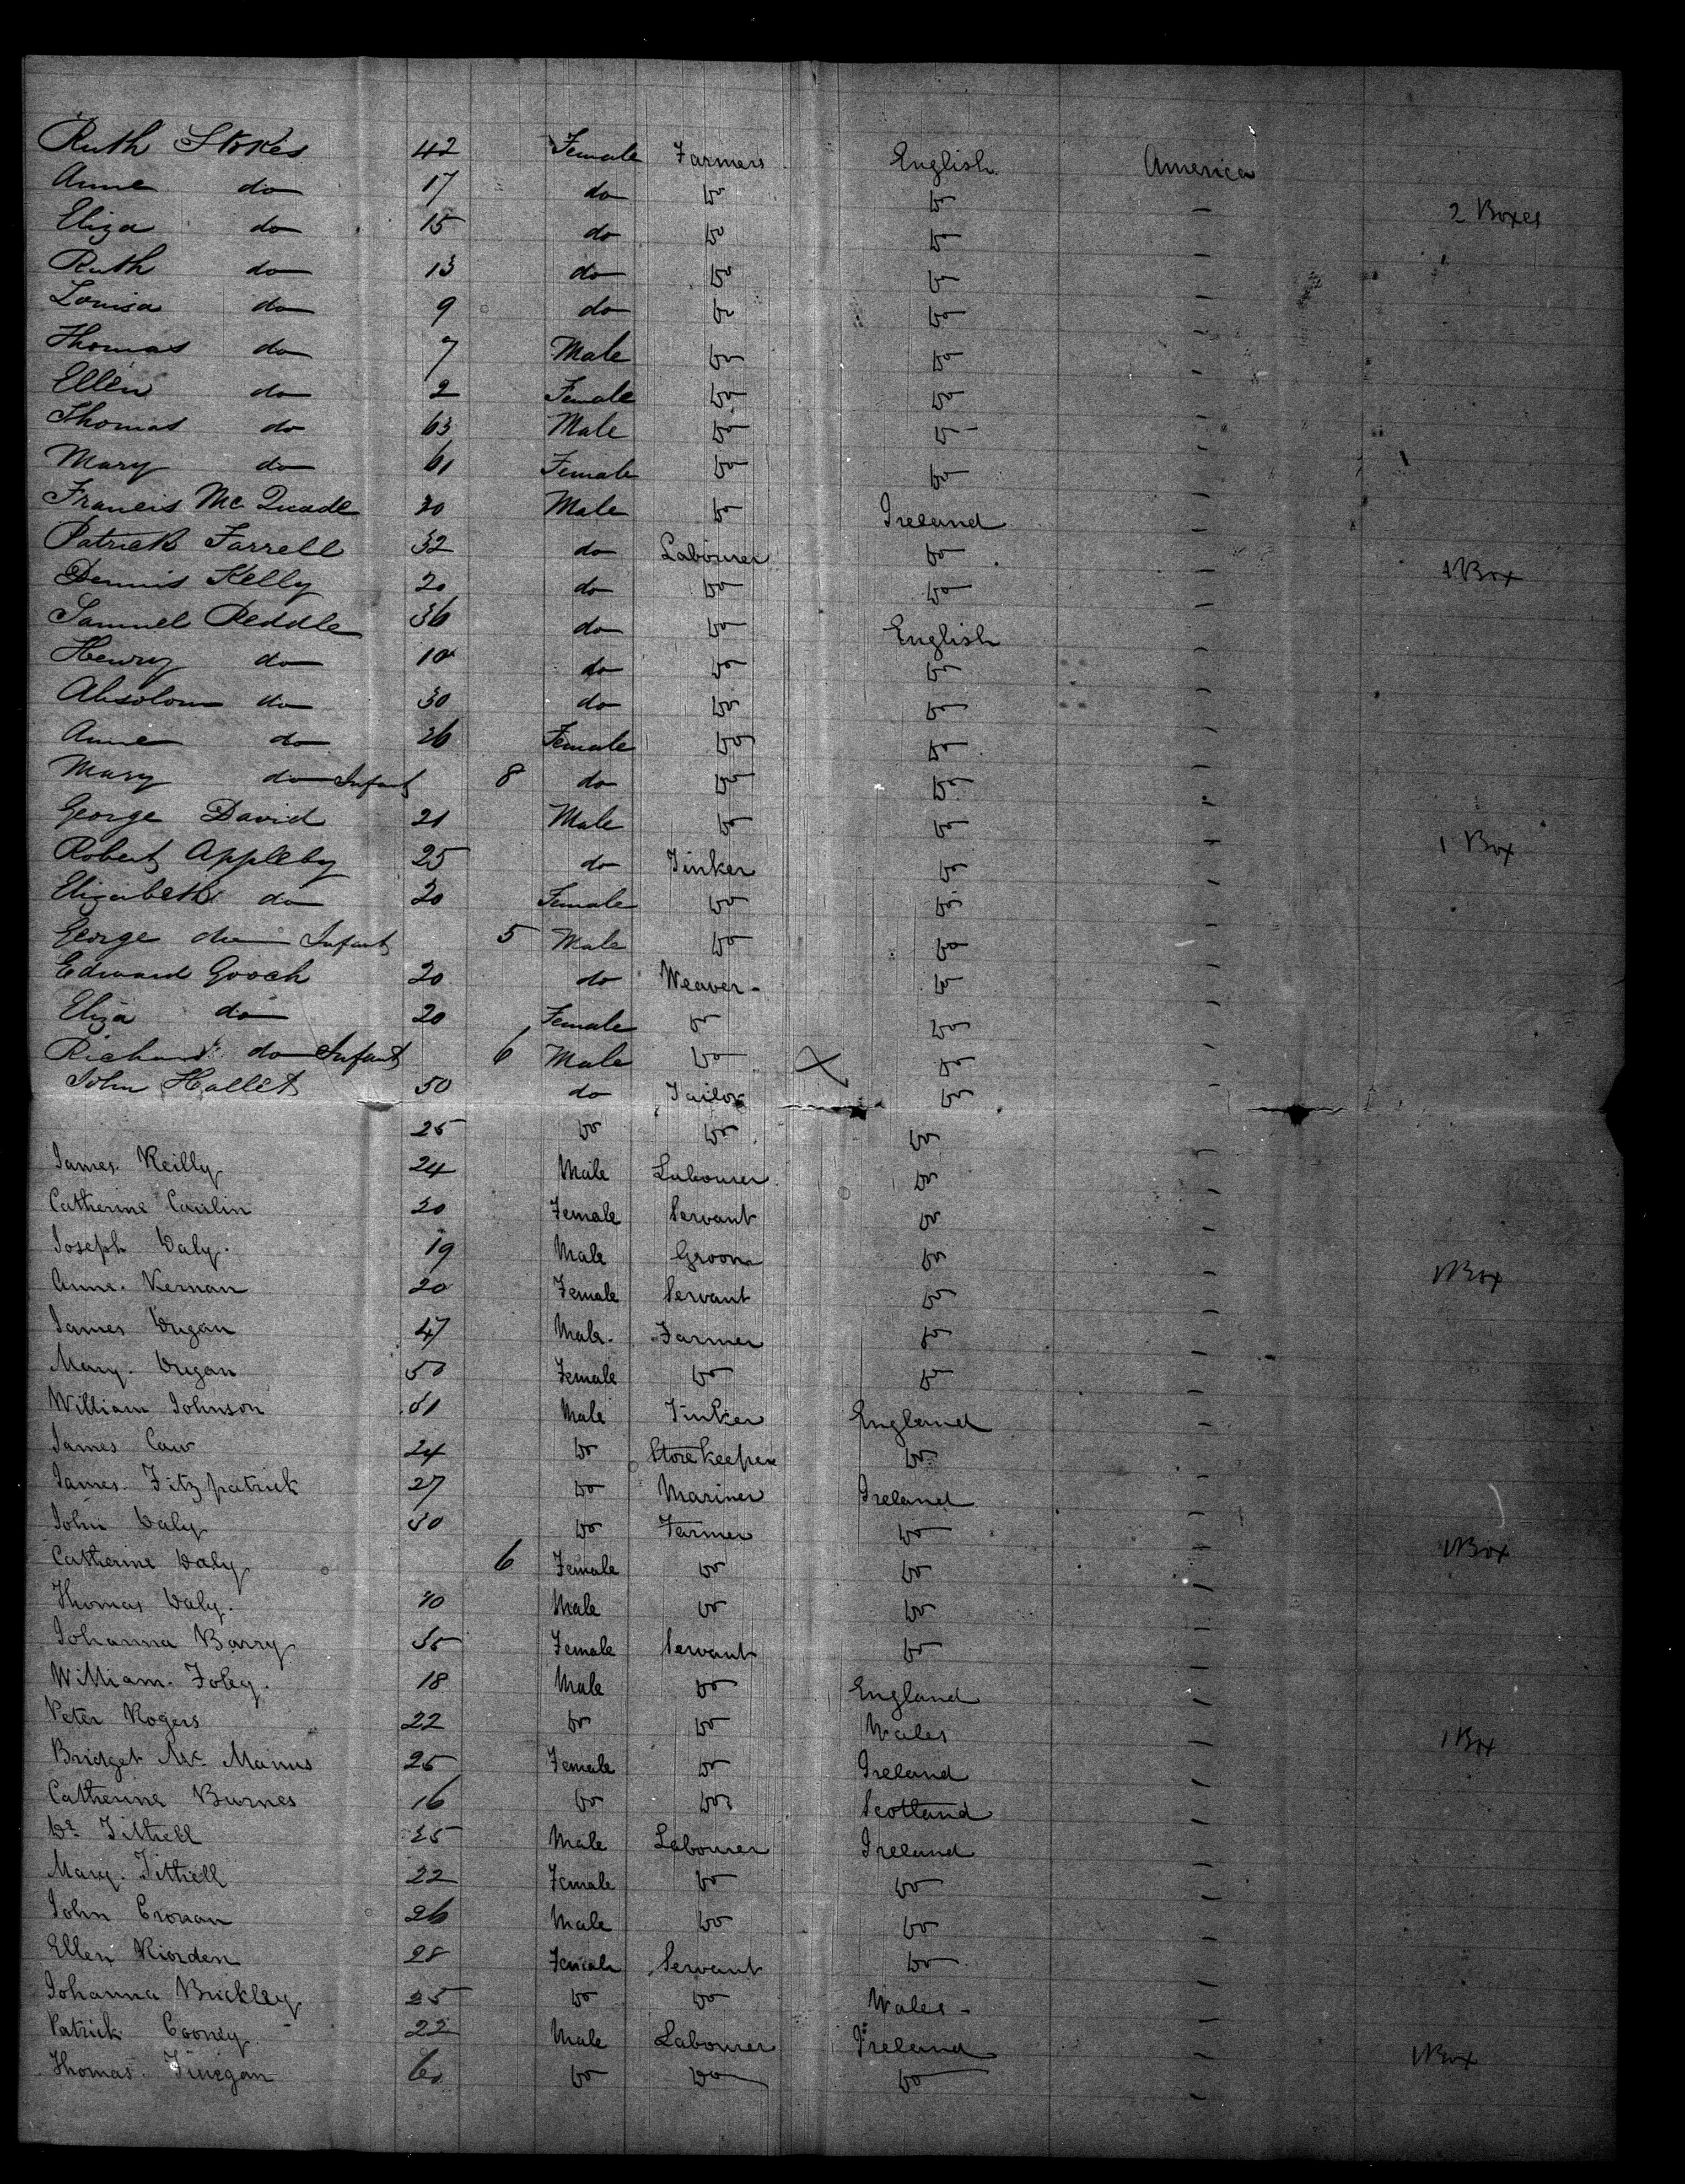 Ruth Stokes 42 Female Farmers English America
Anne do 17 do Do Do - 2 Boxes
Eliza do 15 do Do Do -
Ruth do 13 do Do Do -
Louisa do 9 do Do Do -
Thomas do 7 Male Do Do -
Ellen do 2 Female Do Do -
Thomas do 63 Male Do Do -
Mary do 61 Female Do Do -
Francis Mc Quade 30 Male Do Ireland -
Patrick Farrell 32 do Labourer Do - 1 Box
Dennis Kelly 20 do Do Do -
Samuel Peddle 36 do Do English -
Henry do 10 do Do Do -
Absolom do 30 do Do Do -
Anne do 26 Female Do Do -
Mary do Infant 8 do Do Do -
George David 21 Male Do Do - 1 Box
Robert Appleby 25 do Tinker Do -
Elizabeth do 20 Female Do Do -
George do Infant 5 Male Do Do -
Edward Gooch 20 do Weaver Do -
Eliza do 20 Female Do Do -
Richard do Infant 6 Male Do X Do -
John Hallet 50 do Tailor Do
25 Do Do Do -
James Reilly 24 Male Labourer Do -
Catherine Carlin 20 Female Servant Do -
Joseph Daly 19 Male Groom Do - 1 Box
Anne Kernan 20 Female Servant Do -
James Dugan 47 Male Farmer Do -
Mary Dugan 50 Female Do Do -
William Johnson Male Tinker England -
James 24 Do Storekeeper Do -
James Fitzpatrick 27 Do Mariner Ireland -
John Daly Do Farmer Do - 1 Box
Catherine Daly 6 Female Do Do -
Thomas Daly Male Do Do -
Johanna Barry 35 Female Servant Do -
William Foley 18 Male Do England -
Peter Rogers 22 Do Do Wales - 1 Box
Bridget Mc Manus 25 Female Do Ireland -
Catherine Burnes 16 Do Do Scotland -
Tithell 25 Male Labourer Ireland -
Mary Tithell 22 Female Do Do -
John Cronan 26 Male Do Do -
Ellen Riorden 28 Female Servant Do -
Johanna Brickley 25 Do Do Wales -
Patrick Cooney 22 Male Labourer Ireland - 1 Box
Thomas Finegan Do Do Do -